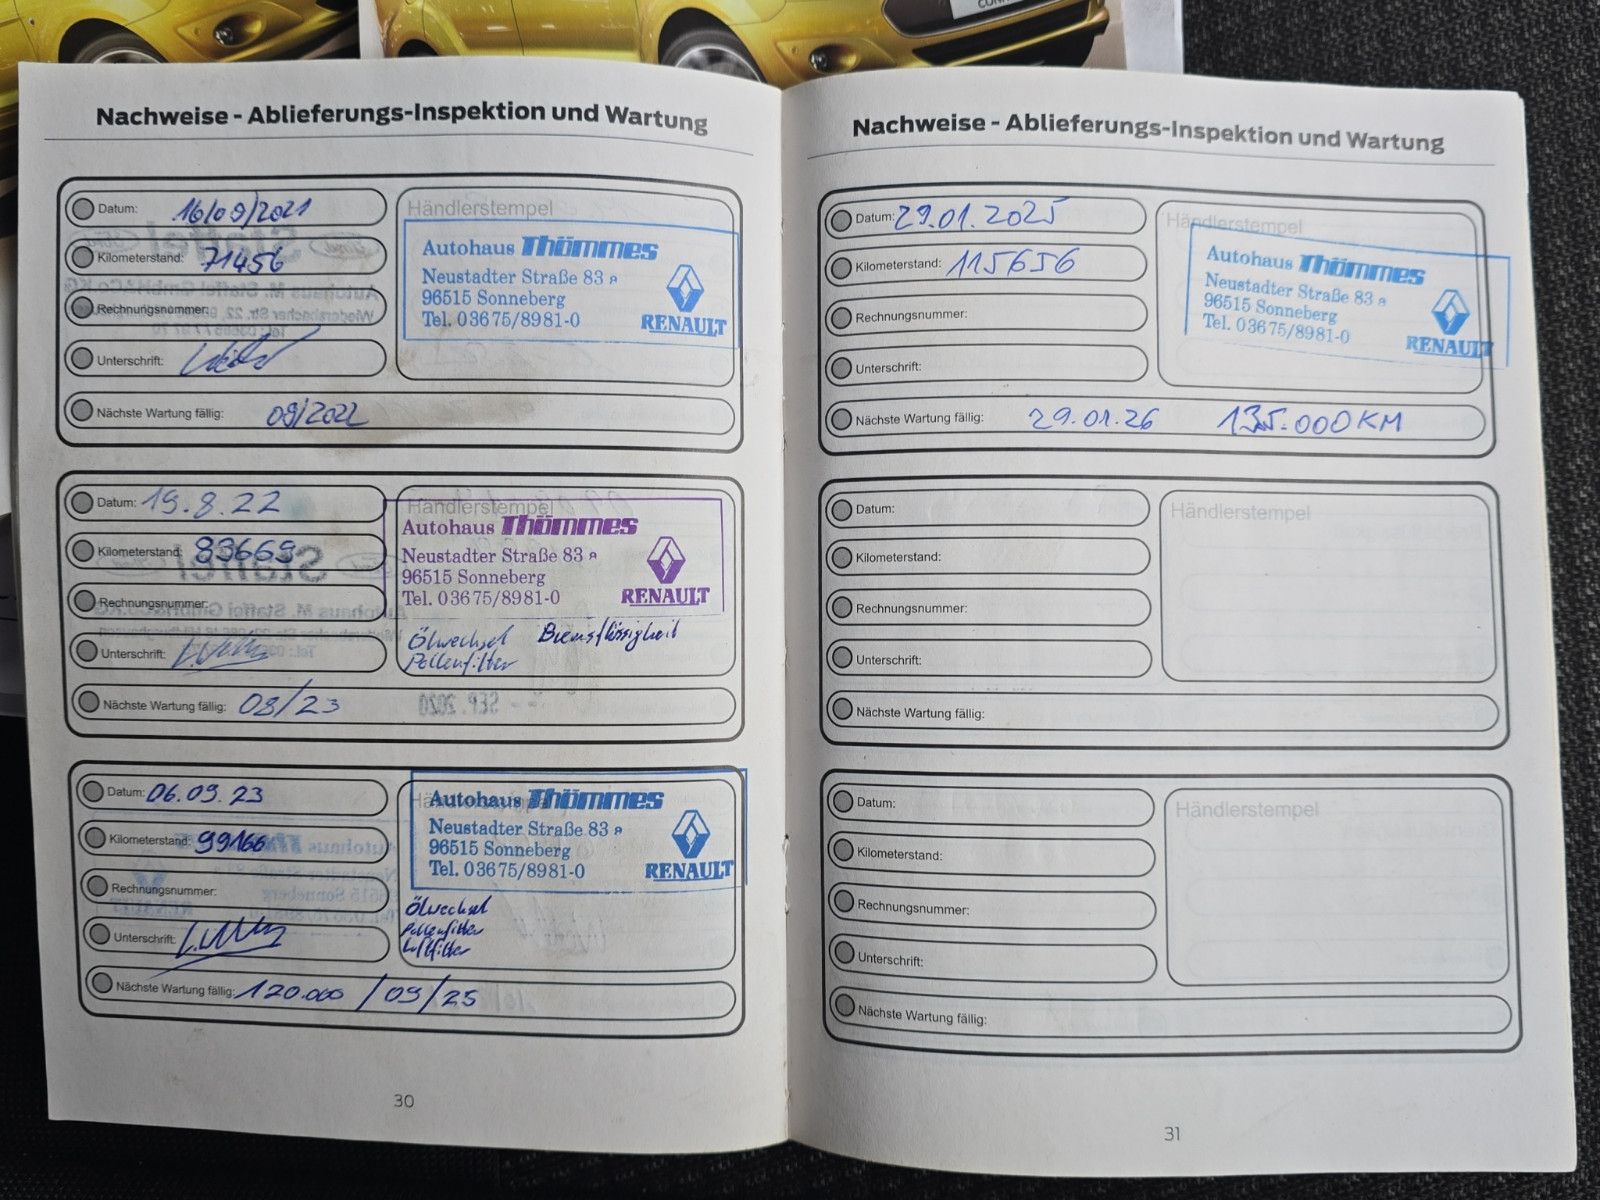 Nachweise - Ablieferungs-Inspektion und Wartung
Datum: 16/09/2021
Kilometerstand: 71456
Rechnungsnummer:
Unterschrift:
Nächste Wartung fällig: 09/2022
Händlerstempel
Autohaus Thömmes
Neustadter Straße 83 a
96515 Sonneberg
Tel. 03675/8981-0
RENAULT
Datum: 19.8.22
Kilometerstand: 83669
Rechnungsnummer:
Unterschrift:
Nächste Wartung fällig: 08/23
Händlerstempel
Autohaus Thömmes
Neustadter Straße 83 a
96515 Sonneberg
Tel. 03675/8981-0
RENAULT
Ölwechsel Bremsflüssigkeit
Pollenfilter
Datum: 06.09.23
Kilometerstand: 99166
Rechnungsnummer:
Unterschrift:
Nächste Wartung fällig: 120.000 / 09/25
Autohaus Thömmes
Neustadter Straße 83 a
96515 Sonneberg
Tel. 03675/8981-0
RENAULT
Ölwechsel
Pollenfilter
Luftfilter
30
Nachweise - Ablieferungs-Inspektion und Wartung
Datum: 29.01.2025
Kilometerstand: 115656
Rechnungsnummer:
Unterschrift:
Nächste Wartung fällig: 29.01.26 135.000 KM
Händlerstempel
Autohaus Thömmes
Neustadter Straße 83 a
96515 Sonneberg
Tel. 03675/8981-0
RENAULT
Datum:
Kilometerstand:
Rechnungsnummer:
Unterschrift:
Nächste Wartung fällig:
Händlerstempel
Datum:
Kilometerstand:
Rechnungsnummer:
Unterschrift:
Nächste Wartung fällig:
Händlerstempel
31